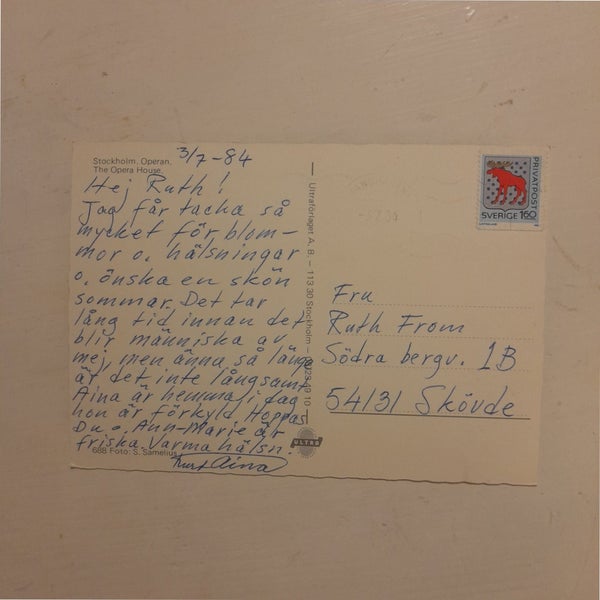 Stockholm. Operan.
The Opera House.
3/7-84
Hej Ruth!
Jag får tacka så
mycket för blom-
mor o. hälsningar
o. önska en skön
sommar. Det tar
lång tid innan det
blir människa av
mej, men ännu så länge
är det inte långsamt
Aina är hemma i dag
hon är förkyld. Hoppas
Du o. Ann-Marie är
friska. Varma hälsn.
Aina
688 Foto: S. Samelius
Ultraförlaget A. B. – 113 30 Stockholm –
ULTRA
PRIVATPOST
SVERIGE 160
Fru
Ruth From
Södra bergv. 1B
54131 Skövde